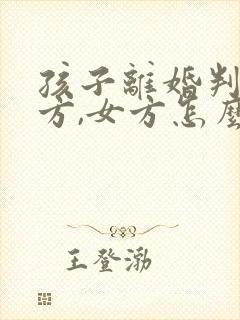 孩子離婚判
方,女方怎麼
王登渤